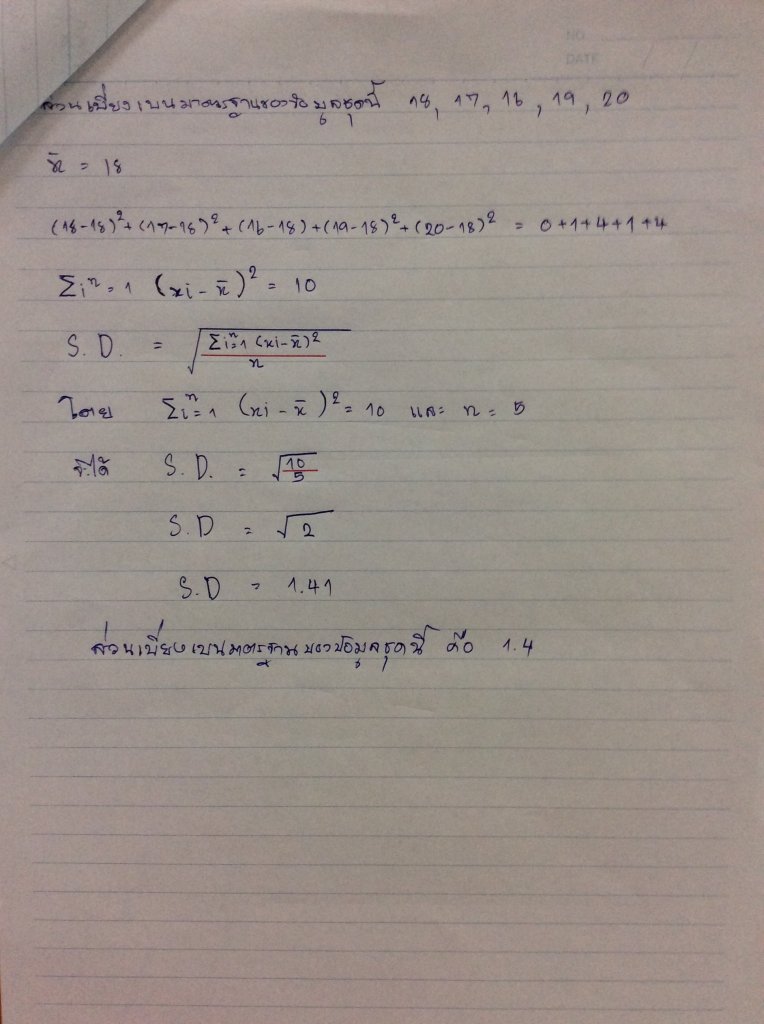 NO.
DATE / /
ส่วนเบี่ยงเบนมาตรฐานของข้อมูลชุดนี้ 18, 17, 16, 19, 20
x̄ = 18
(18-18)²+(17-18)²+(16-18)+(19-18)²+(20-18)² = 0+1+4+1+4
Σiⁿ=1 (xi-x̄)² = 10
S.D. = √(Σiⁿ=1 (xi-x̄)² / n)
โดย Σiⁿ=1 (xi-x̄)² = 10 และ n = 5
จะได้ S.D. = √(10/5)
S.D = √2
S.D = 1.41
ส่วนเบี่ยงเบนมาตรฐานของข้อมูลชุดนี้ คือ 1.4